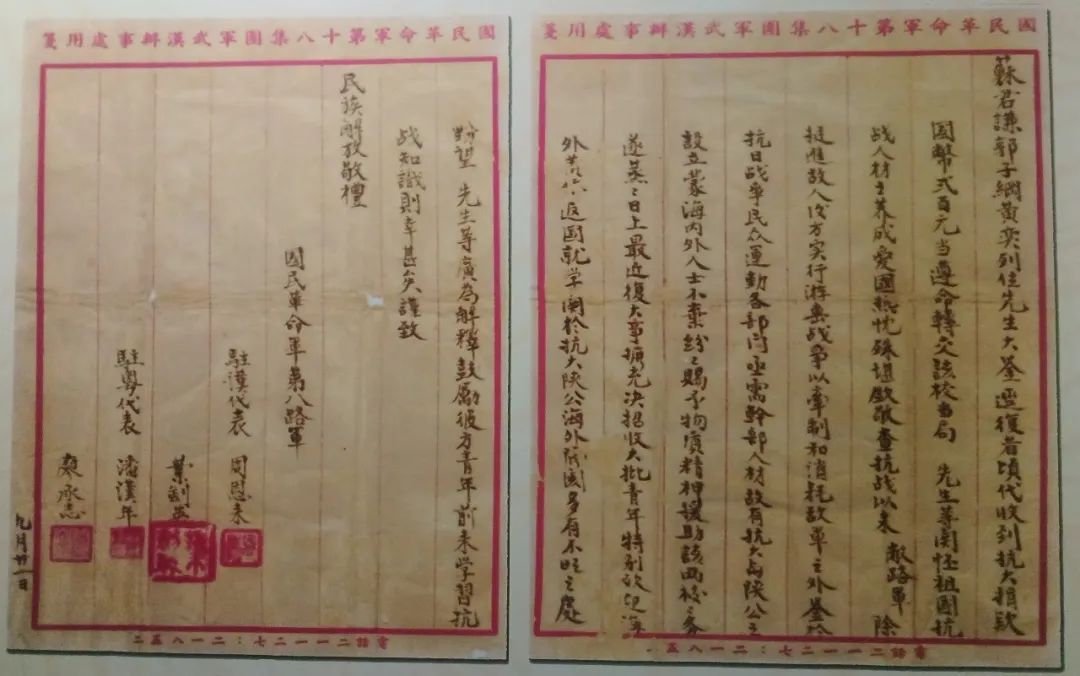 國民革命軍第十八集團軍武漢辦事處用箋
蘇君謙郭子綱黃奕列位先生大鉴逕復者頃代收到抗大捐款
國幣弍百元当遵命轉交該校当局 先生等関怀祖國抗
战人材之养成爱國热忱殊堪欽敬查抗战以来 敝路軍 除
挺進敌人后方实行游击战争以牽制和消耗敌軍之外鉴於
抗日战争民众運動各部门亟需幹部人材故有抗大与陝公之
設立蒙海内外人士不棄紛々賜予物质精神援助該两校々务
遂蒸々日上最近復大事擴充决招收大批青年特别欢迎海
外 返國就学関於抗大陝公海外 國多有不明之處
電話二一一二七：二一八五
國民革命軍第十八集團軍武漢辦事處用箋
盼望 先生等廣為解釋鼓励彼方青年前来学習抗
战知識則幸甚矣謹致
民族解放敬禮
國民革命軍第八路軍
駐漢代表 周恩来
葉劍英
駐粤代表 潘漢年
廖承志
九月廿一日
電話二一一二七：二一八五二